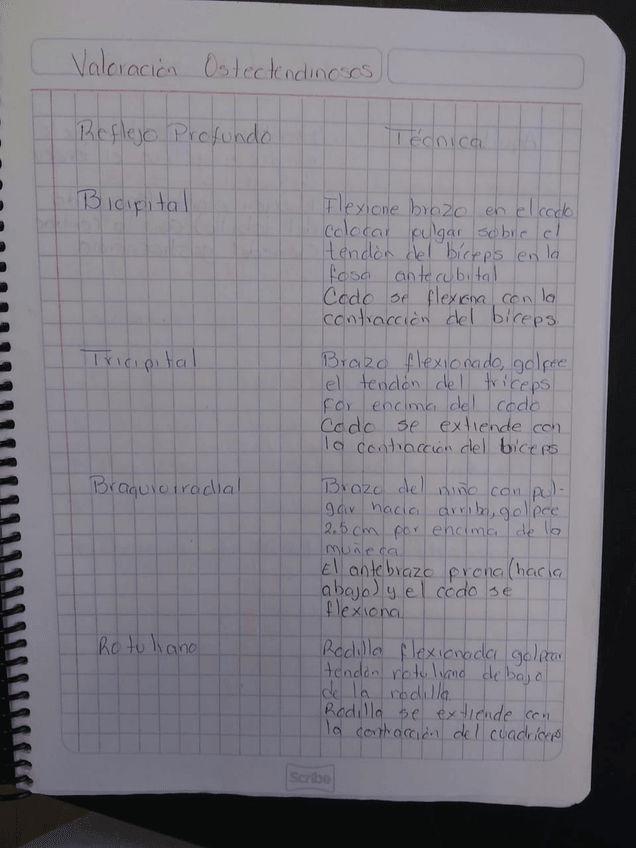 Valoración Osteotendinosos
Reflejo Profundo Técnica
Bicipital Flexione brazo en el codo
colocar pulgar sobre el
tendón del bíceps en la
fosa antecubital
Codo se flexiona con la
contracción del bíceps.
Tricipital Brazo flexionado, golpee
el tendón del tríceps
por encima del codo
Codo se extiende con
la contracción del bíceps
Braquioirradial Brazo del niño con pul-
gar hacia arriba, golpee
2.5 cm por encima de la
muñeca.
El antebrazo prona (hacia
abajo) y el codo se
flexiona
Rotuliano Rodilla flexionada golpear
tendón rotuliano debajo
de la rodilla.
Rodilla se extiende con
la contracción del cuadríceps
Scribe